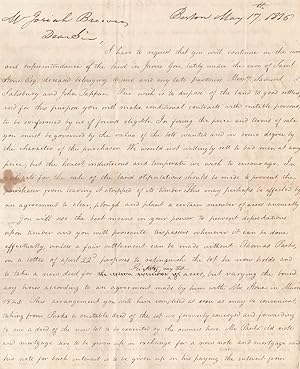 Mr Josiah Brown Boston May 17th 1836
Dear Sir,
I have to request that you will continue in the care
and superintendence of the land in Jarvis Gore, lately under the care of Daniel
Stone Esq. deceased belonging to me and my late partners Messrs Samuel
Salisbury and John Tappan. Our wish is to dispose of the land to good settlers,
and for this purpose you will make conditional contracts with suitable persons
to be confirmed by us if found eligible. In fixing the price and terms of sale
you must be governed by the value of the lots wanted and in some degree by
the character of the purchaser. We would not willingly sell to bad men at any
price, but the honest industrious and temperate we wish to encourage. In
for the sale of the land stipulations should be made to prevent the
purchaser from leaving it stripped of its timber this may perhaps be effected by
an agreement to clear, plough and plant a certain number of acres annually.
You will use the best means in your power to prevent depredations
upon timber and you will prosecute trespassers wherever it can be done
effectually, unless a fair settlement can be made without Thomas Parks
in a letter of april 22d proposes to relinquish the lot he now holds and
to take a new deed for acres, but varying the bound
ary lines according to an agreement made by him with Mr Stone in March
1840. This arrangement you will have completed as soon as may be convenient
taking from Parks a suitable deed of the lot we formerly conveyed and forwarding
to me a deed of the new lot to be executed by the owners here. Mr Parks' old note
and mortgage are to be given up in exchange for a new note and mortgage and
his note for back interest is to be given up on his paying the interest from